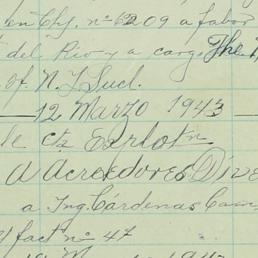 en Chq. nº 6209 a fabor
del Rio y a cargo The
of N. Y. Sucl.
12 Marzo 1943
a Acreedores Dive
a Ing. Cárdenas Cam
fact nº 47
1943